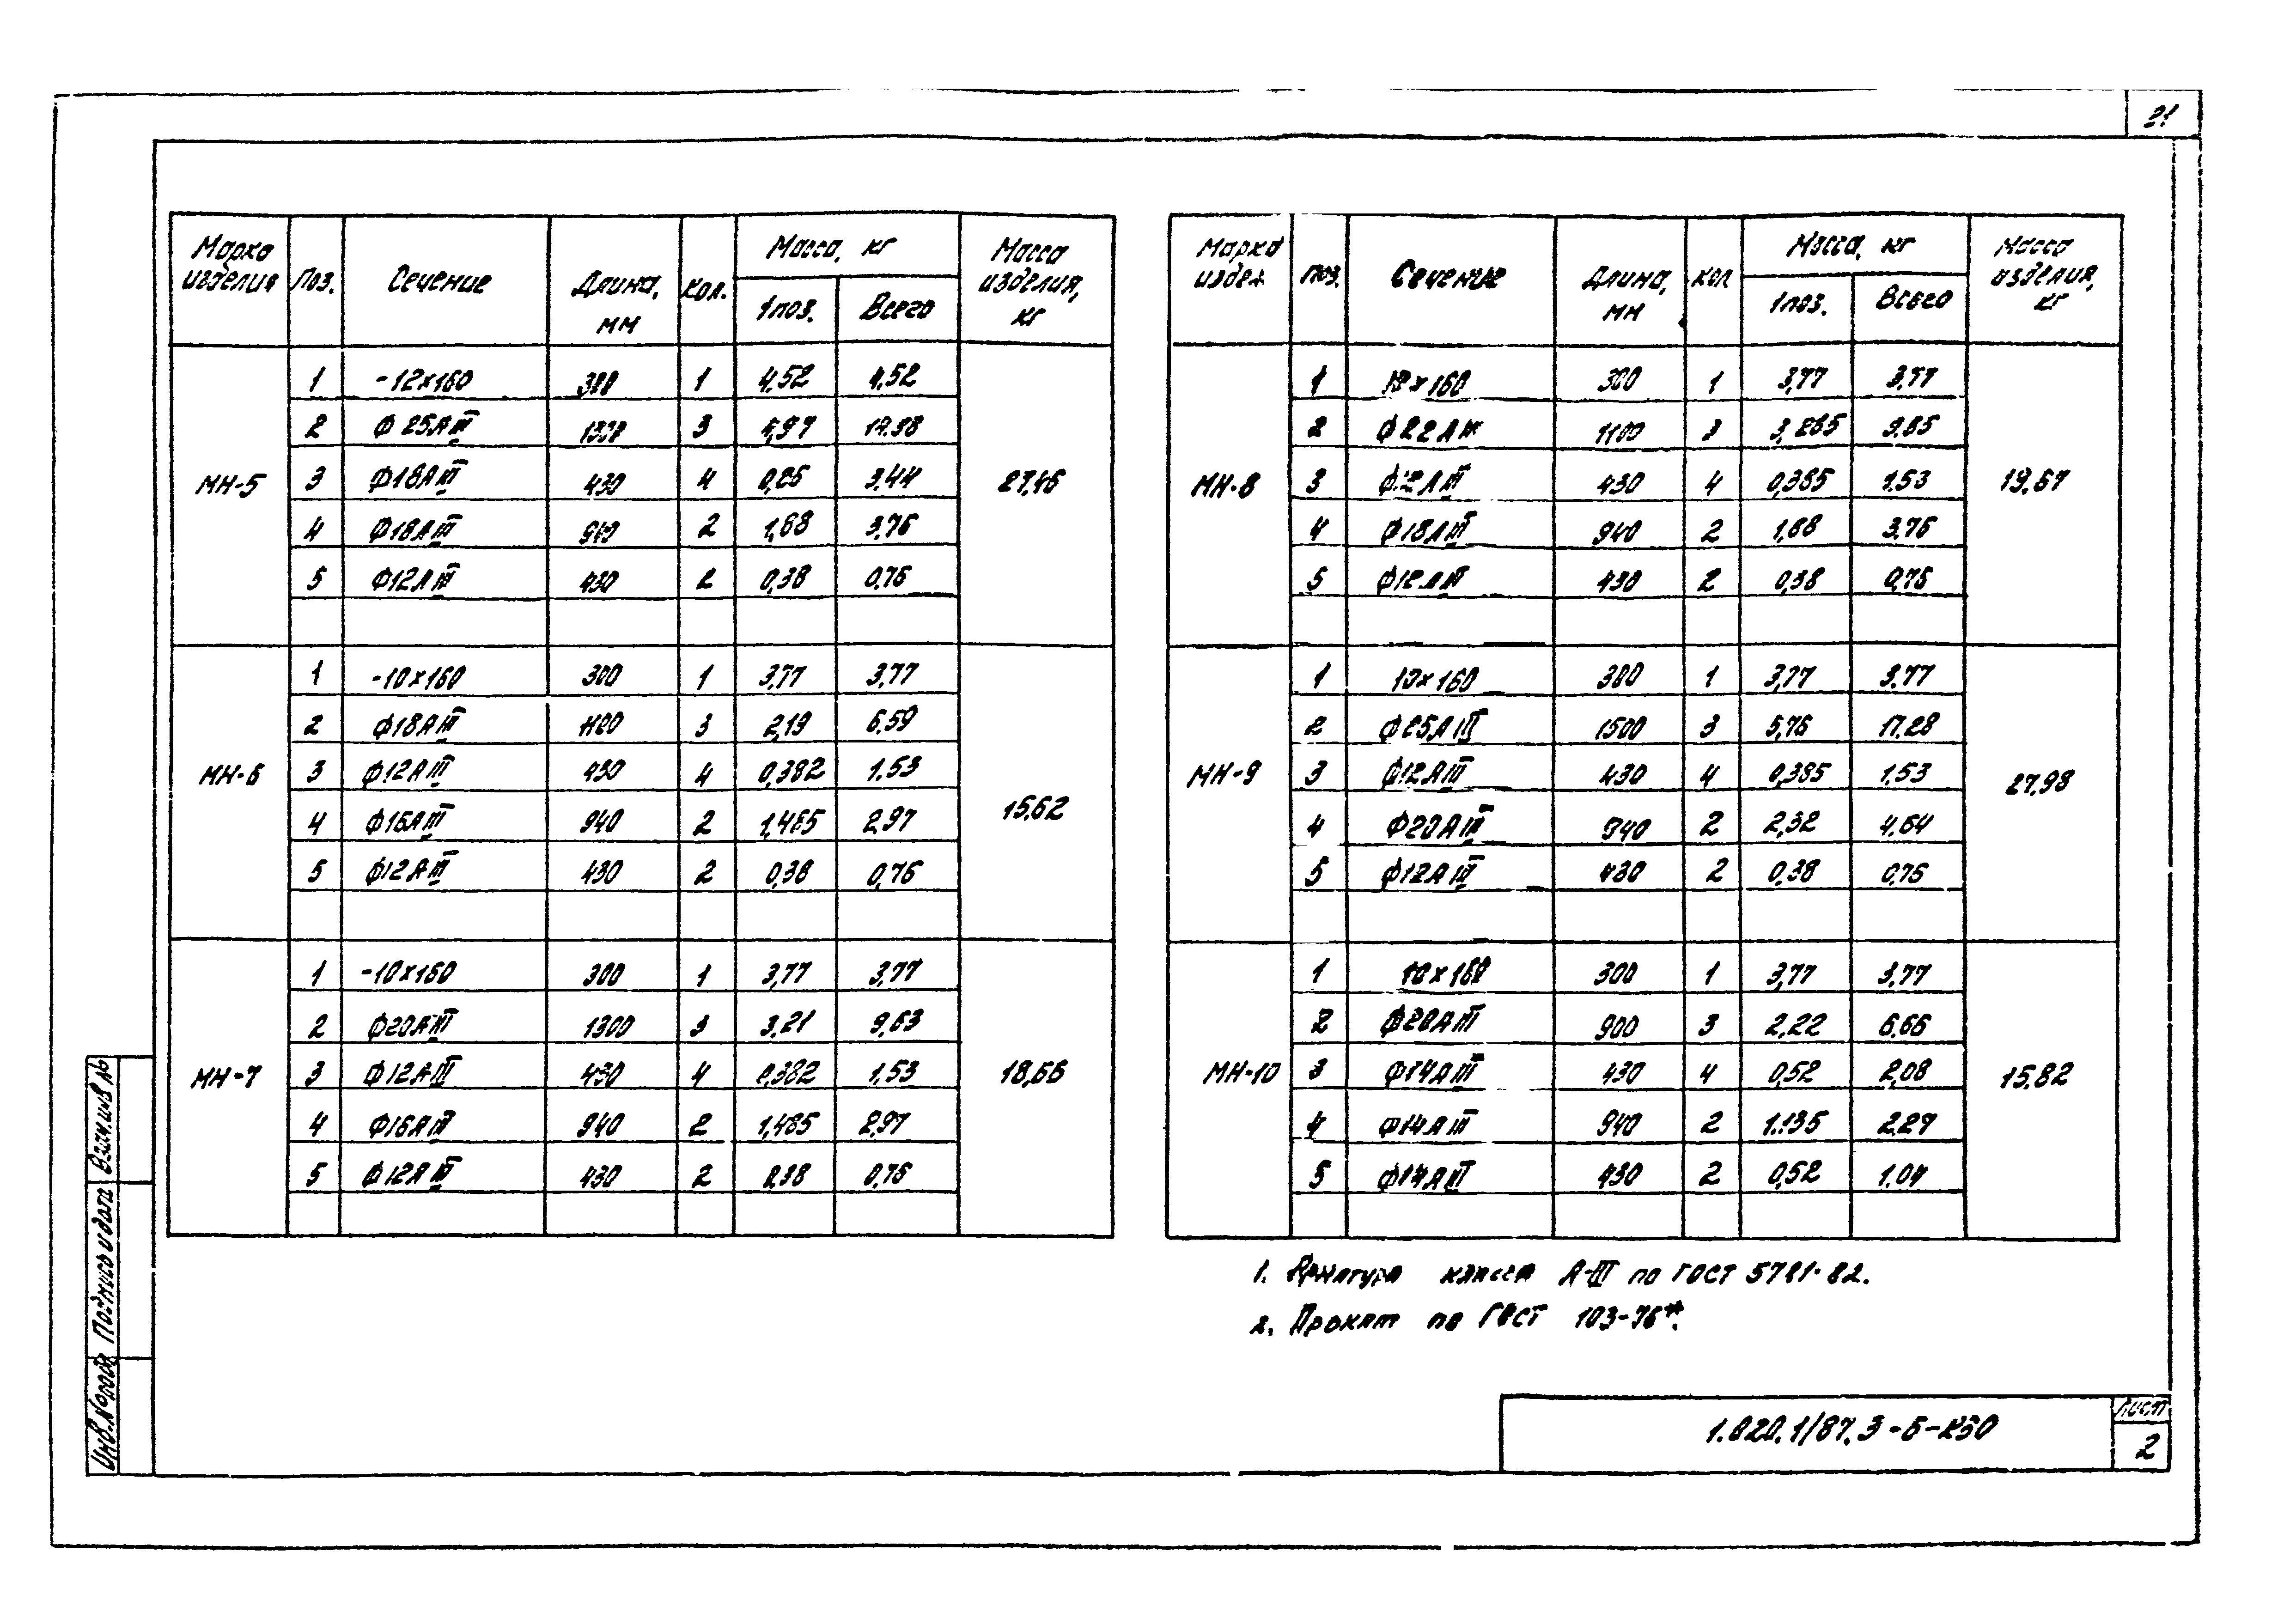 21
Марка изделия Поз. Сечение Длина, мм Кол. Масса, кг 1 поз. Всего Масса изделия, кг
МН-5 27,46
1 -12×160 300 1 4,52 4,52
2 Ф25АIII 3
3 Ф18АIII 430 4 0,86 3,44
4 Ф18АIII 940 2 1,88 3,76
5 Ф12АIII 430 2 0,38 0,76
МН-6 15,62
1 -10×160 300 1 3,77 3,77
2 Ф18АIII 1100 3 2,19 6,59
3 Ф12АIII 430 4 0,382 1,53
4 Ф16АIII 940 2 1,485 2,97
5 Ф12АIII 430 2 0,38 0,76
МН-7 18,66
1 -10×160 300 1 3,77 3,77
2 Ф20АIII 1300 3 3,21 9,63
3 Ф12АIII 430 4 0,382 1,53
4 Ф16АIII 940 2 1,485 2,97
5 Ф12АIII 430 2 0,38 0,76
Марка издел Поз. Сечение Длина, мм Кол Масса, кг 1 поз. Всего Масса изделия, кг
МН-8 19,67
1 10×160 300 1 3,77 3,77
2 Ф22АIII 1100 3 3,285 9,85
3 Ф12АIII 430 4 0,385 1,53
4 Ф18АIII 940 2 1,88 3,76
5 Ф12АIII 430 2 0,38 0,76
МН-9 27,98
1 10×160 300 1 3,77 3,77
2 Ф25АIII 1500 3 5,76 17,28
3 Ф12АIII 430 4 0,385 1,53
4 Ф20АIII 940 2 2,32 4,64
5 Ф12АIII 430 2 0,38 0,76
МН-10 15,82
1 10×160 300 1 3,77 3,77
2 Ф20АIII 900 3 2,22 6,66
3 Ф14АIII 430 4 0,52 2,08
4 Ф14АIII 940 2 1,135 2,27
5 Ф14АIII 430 2 0,52 1,04
1. Арматура класса А-III по ГОСТ 5781-82.
2. Прокат по ГОСТ 103-76*.
Взам.инв №
Подпись и дата
Инв.№подл
1.020.1/87.3-6-
Лист
2